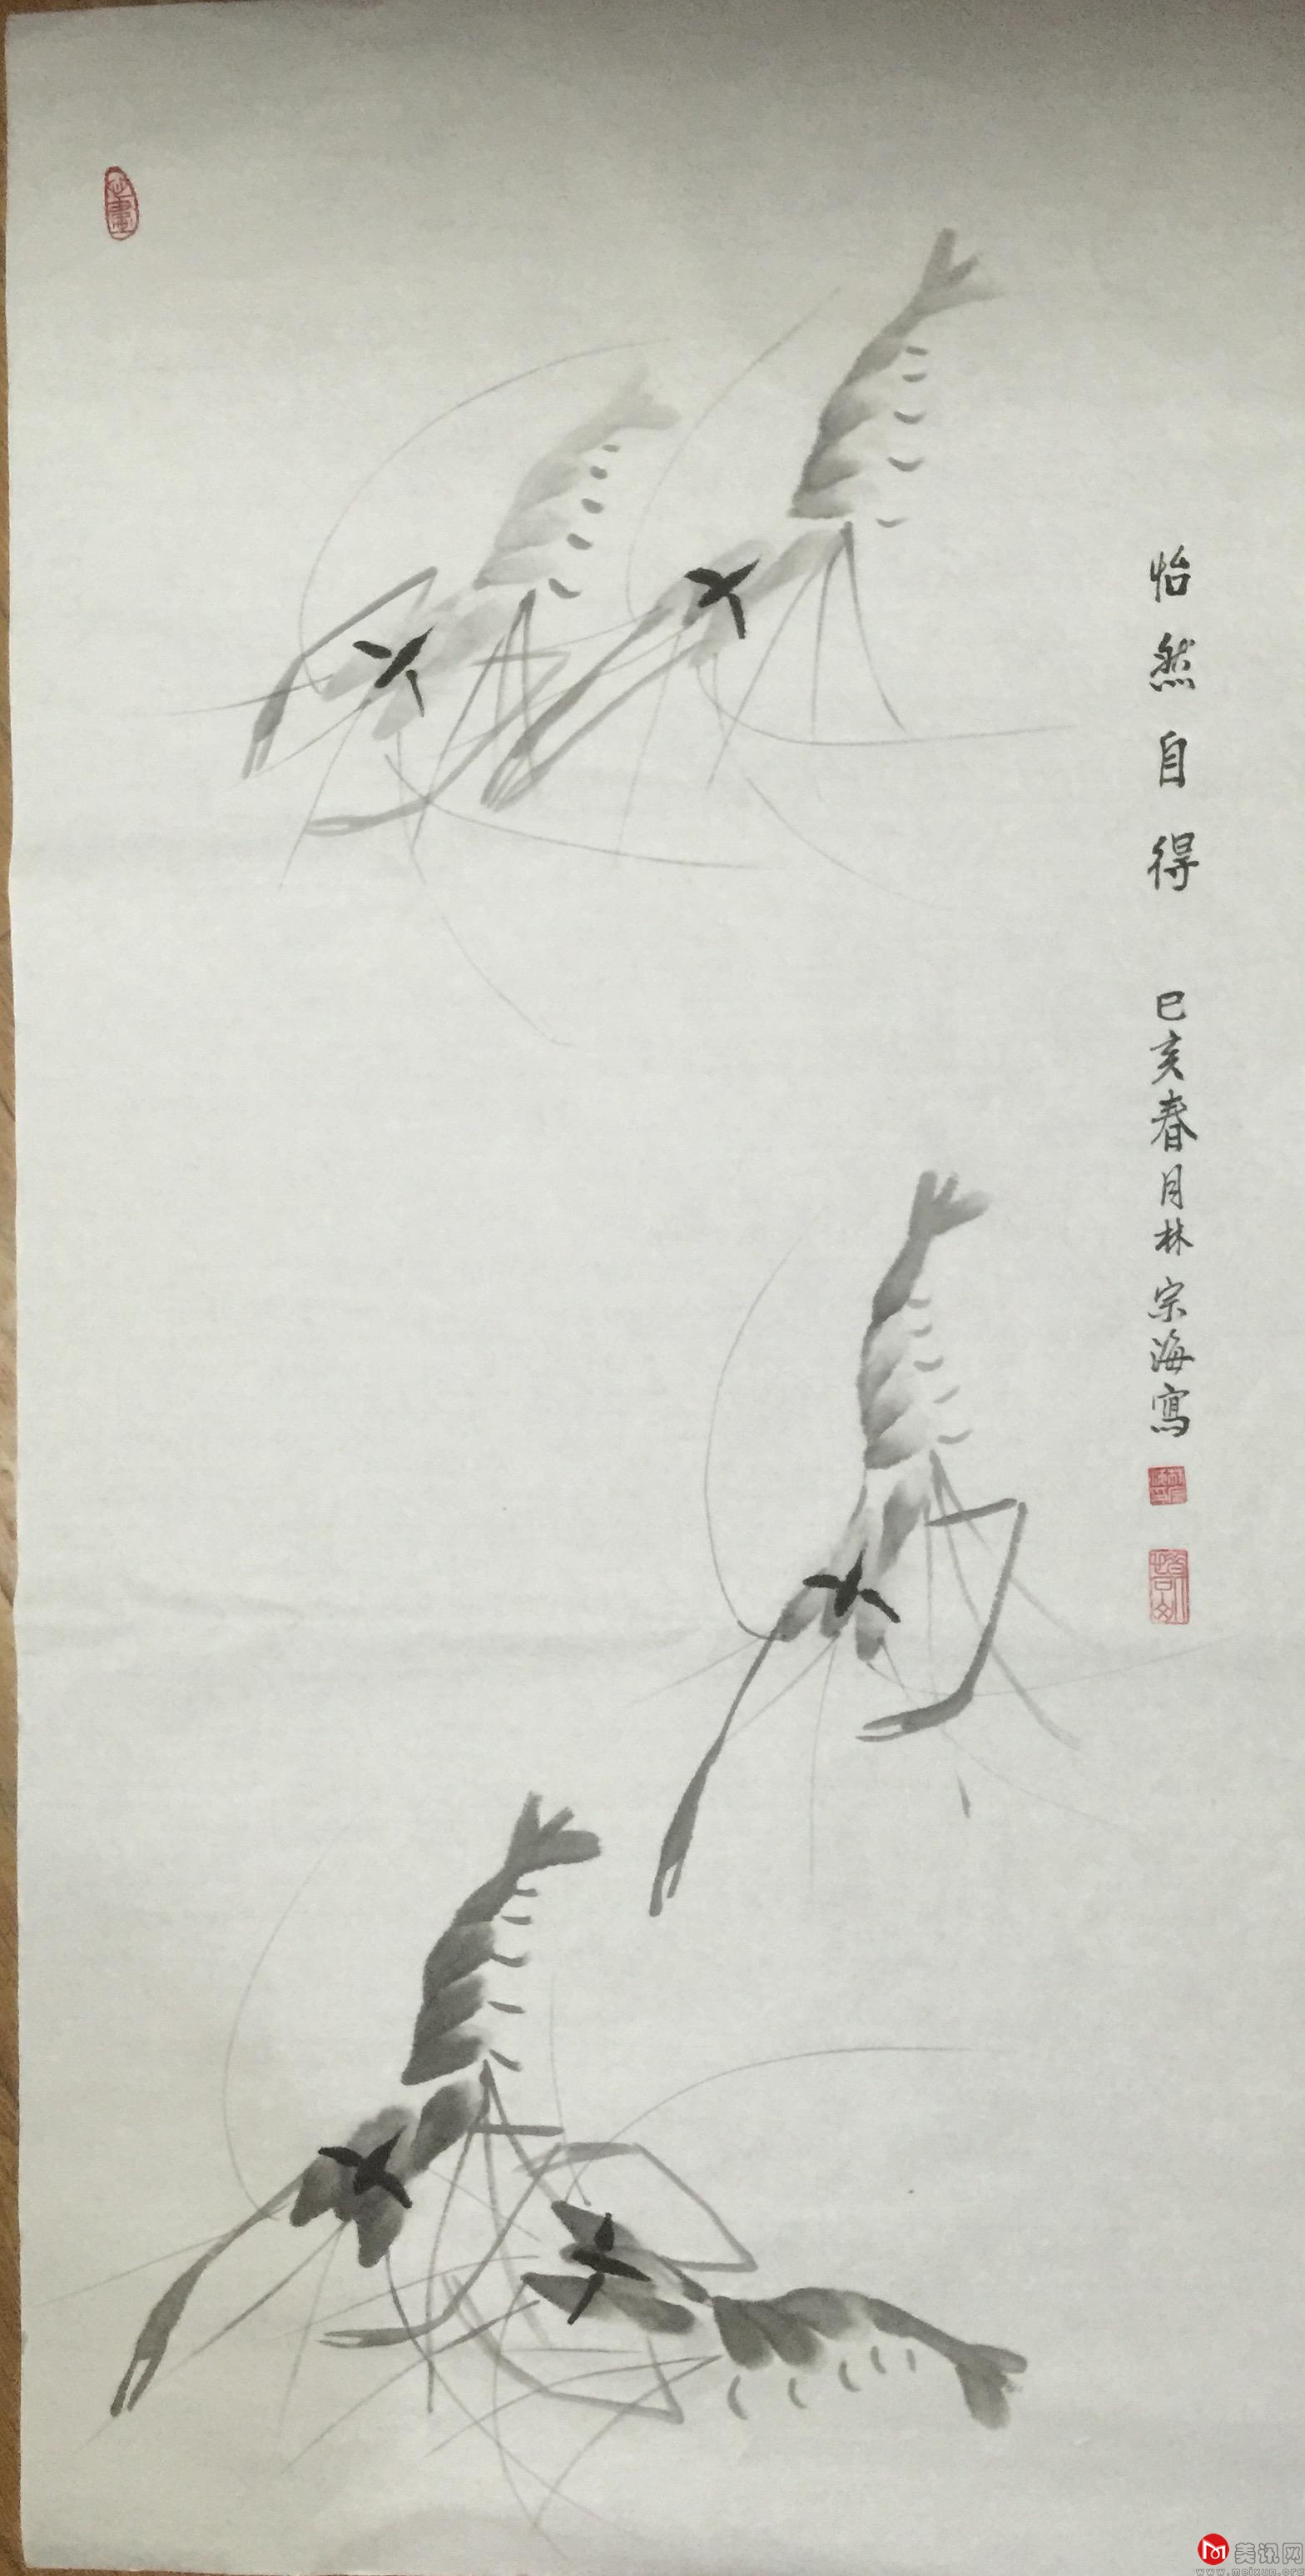 怡然自得
己亥春月林宗海寫
美讯网
www.meixun.org